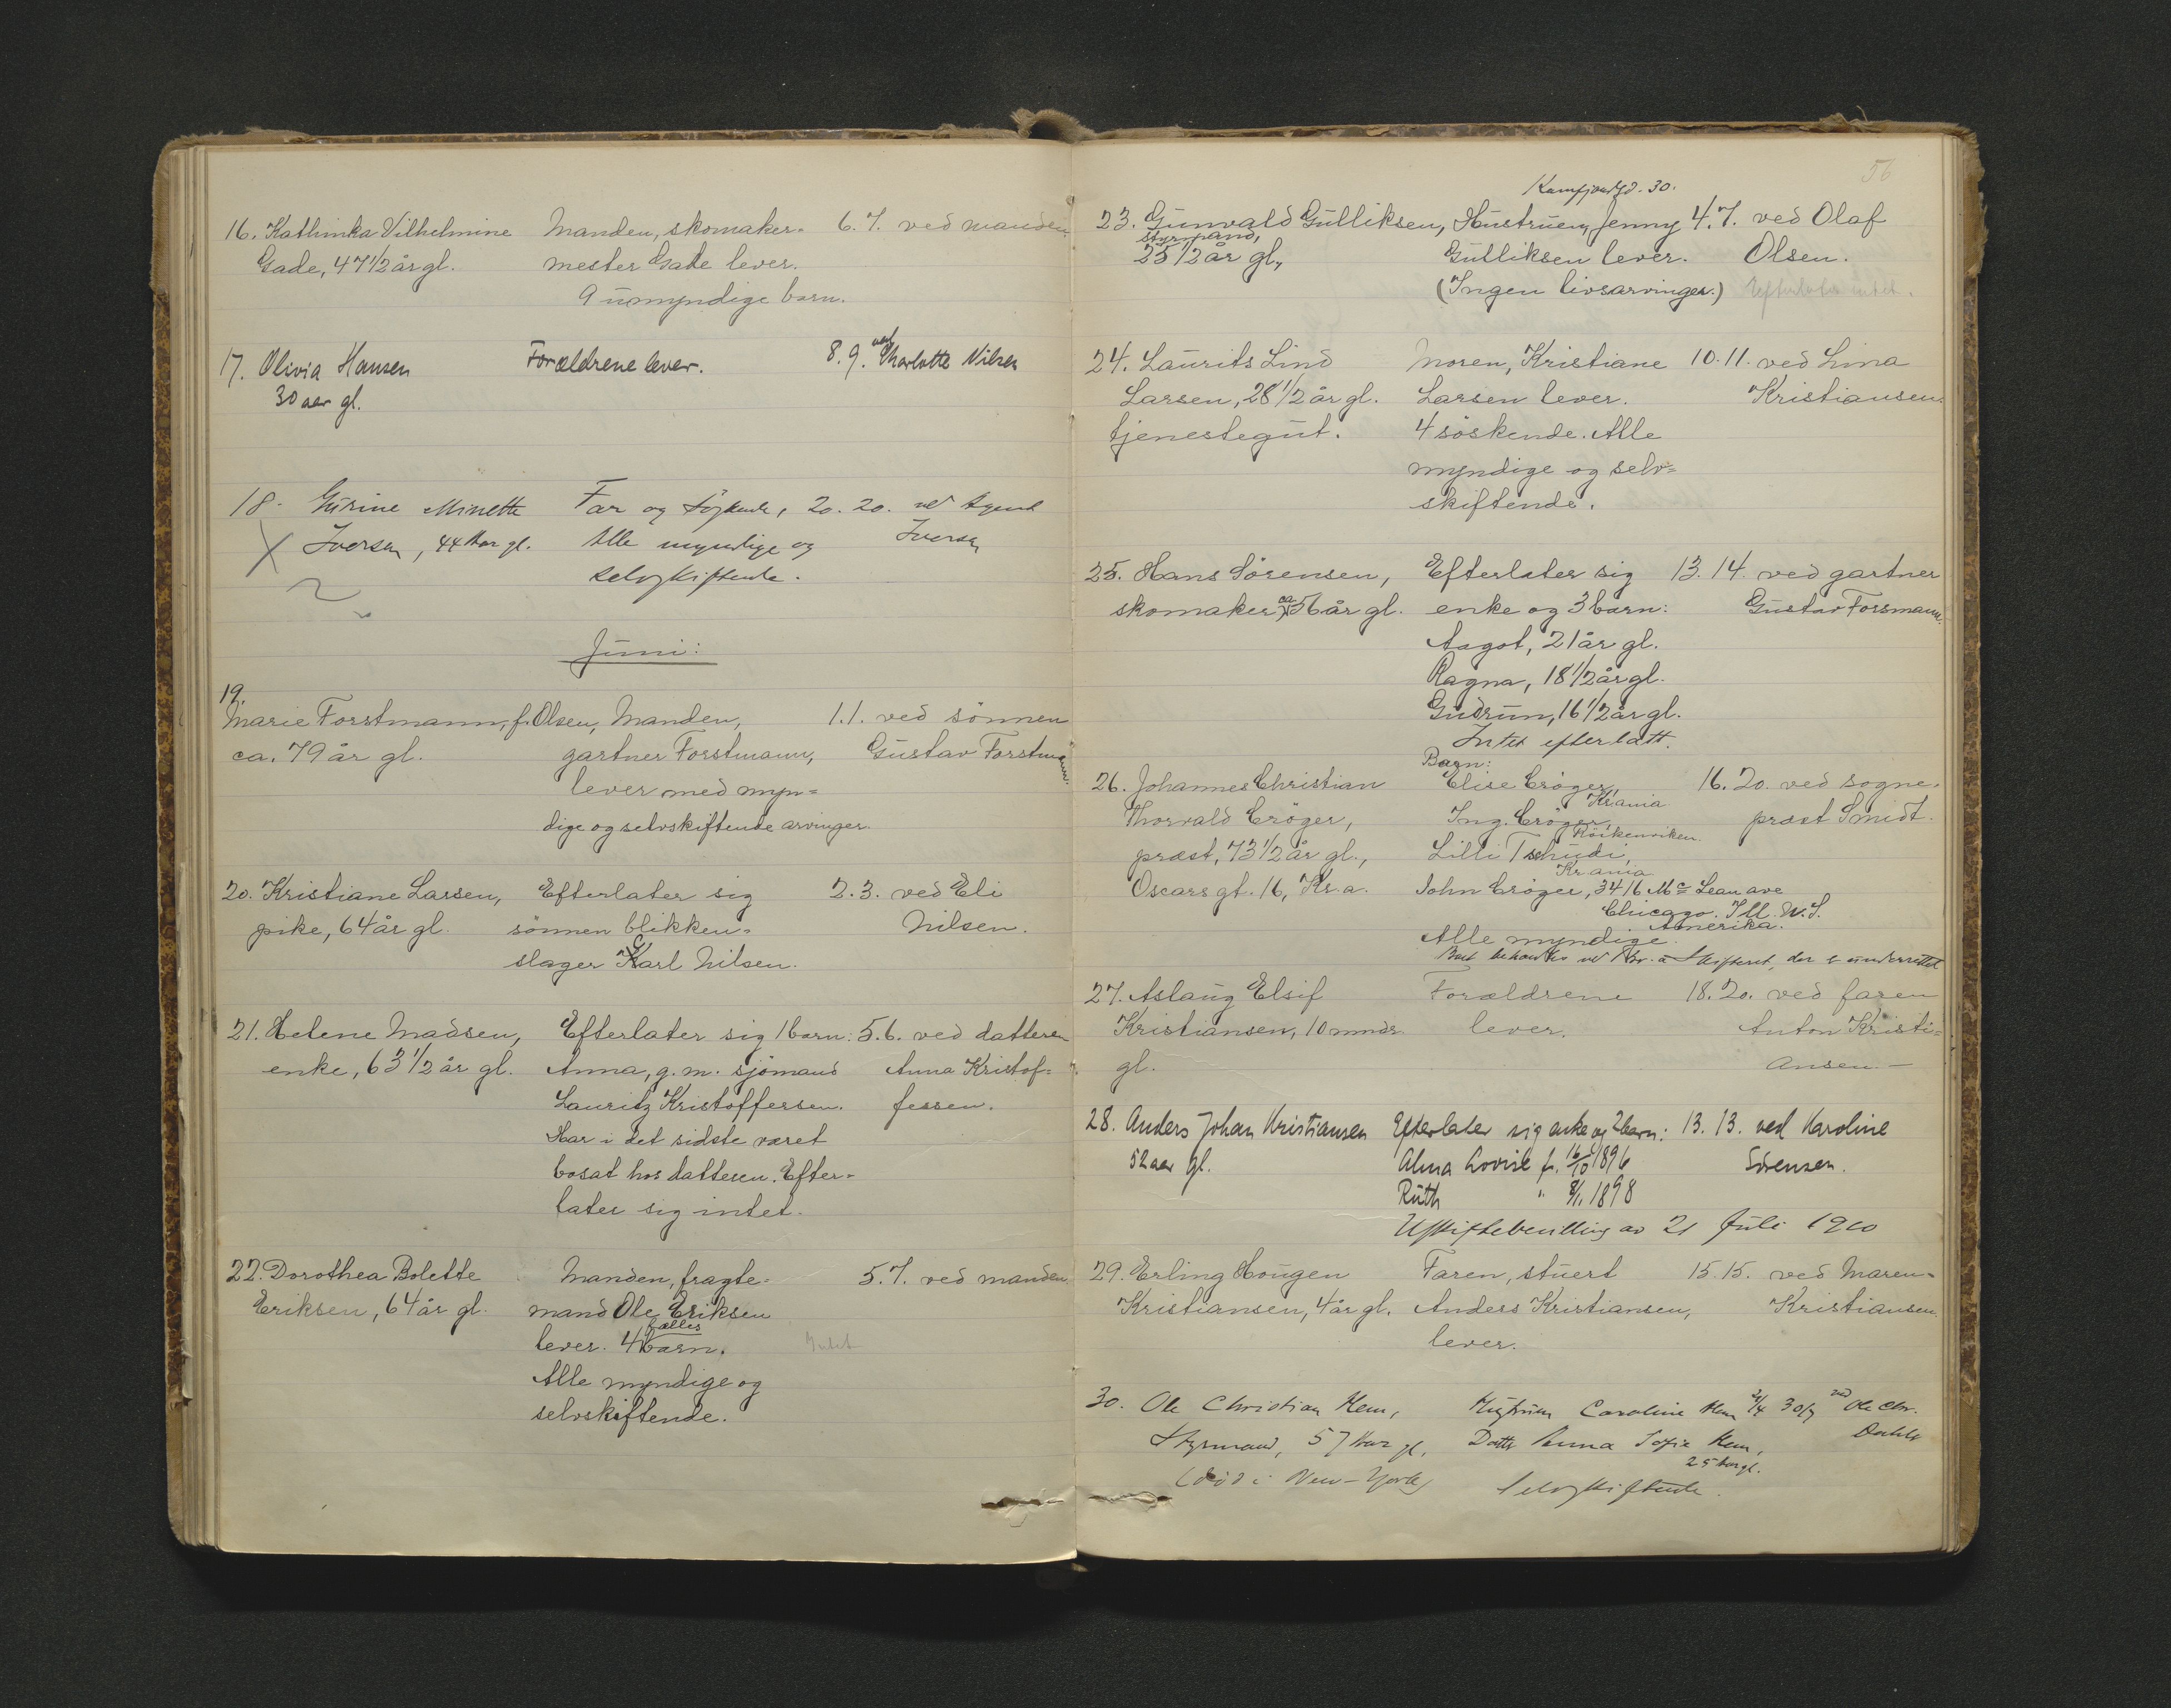 16. Kathinka Vilhelmine Manden, skomaker- 6. 7. ved manden
Gade, 47 1/2 år gl. mester Gade lever.
9 umyndige barn.
17. Olivia Hansen Forældrene lever. 8. 9. ved Charlotte Nilsen
30 aar gl.
18. Gurine Minette Far og Søskende, 20. 20. ved Agent
Iversen, 44 aar gl. Alle myndige og Iversen
selvskiftende.
Juni:
19.
Marie Forstmann, f. Olsen, Manden, 1. 1. ved sönnen
ca. 79 år gl. gartner Forstmann, Gustav Forstmann
lever med myn=
dige og selvskiftende arvinger.
20. Kristiane Larsen, Efterlater sig 2. 3. ved Eli
pike, 64 år gl. sönnen blikken= Nilsen.
slager Karl Nilsen.
21. Helene Madsen, Efterlater sig 1 barn: 5. 6. ved datteren
enke, 63 1/2 år gl. Anna, g. m. sjömand Anna Kristof=
Lauritz Kristoffersen. fersen.
Har i det sidste været
bosat hos datteren. Efter=
later sig intet.
22. Dorothea Bolette Manden, fragte= 5. 7. ved manden.
Eriksen, 64 år gl. mand Ole Eriksen
fælles
lever. 4 barn. Intet
Alle myndige og
selvskiftende.
56
30.
23. Gunvald Gulliksen, Hustruen, Jenny 4. 7. ved Olaf
styrmand,
25 1/2 år gl., Gulliksen lever. Olsen.
(Ingen livsarvinger.) Efterlater intet.
24. Laurits Lind Moren, Kristiane 10. 11. ved Lina
Larsen, 28 1/2 år gl. Larsen lever. Kristiansen.
tjenestegut. 4 söskende. Alle
myndige og selv=
skiftende.
25. Hans Sörensen, Efterlater sig 13. 14. ved gartner
skomaker, ca 56 år gl. enke og 3 barn: Gustav Forsmann.
Aagot, 21 år gl.
Ragna, 18 1/2 år gl.
Gudrun, 16 1/2 år gl.
Intet efterlatt.
Barn:
26. Johannes Christian Elise Cröger, 16. 20. ved sogne-
Kr.ania
Thorvald Cröger, Ing. Cröger, præst Smidt.
Röikenviken.
præst, 73 1/2 år gl., Lilli Tschudi,
Kr.ania
Oscarsgt. 16, Kr.a. John Cröger, 3416 Mc Lean ave
Chicago. Ill. U.S.
Amerika.
Alle myndige.
Boet behandles ved Skifteret, der er underrettet
27. Aslaug Elsif Forældrene 18. 20. ved faren
Kristiansen, 10 mndr. lever. Anton Kristi=
gl. ansen. —
28. Anders Johan Kristiansen Efterlater sig enke og 2 barn: 13. 13. ved Karoline
52 aar gl. Alma Lovise f. 16/10 1896 Sörensen.
Ruth " 8/1 1898
Uskiftebevilling av 21 Juli 1910
29. Erling Hougen Faren, stuert 15. 15. ved Maren
Kristiansen, 4 år gl. Anders Kristiansen, Kristiansen.
lever.
30. Ole Christian Hem, Hustruen Caroline Hem 21/4 30/7 ved Ole Chr.
Styrmand, 57 aar gl. Datter Anna Sofie Hem, Dahler
25 aar gl.
(död i New-York) Selvskiftende.